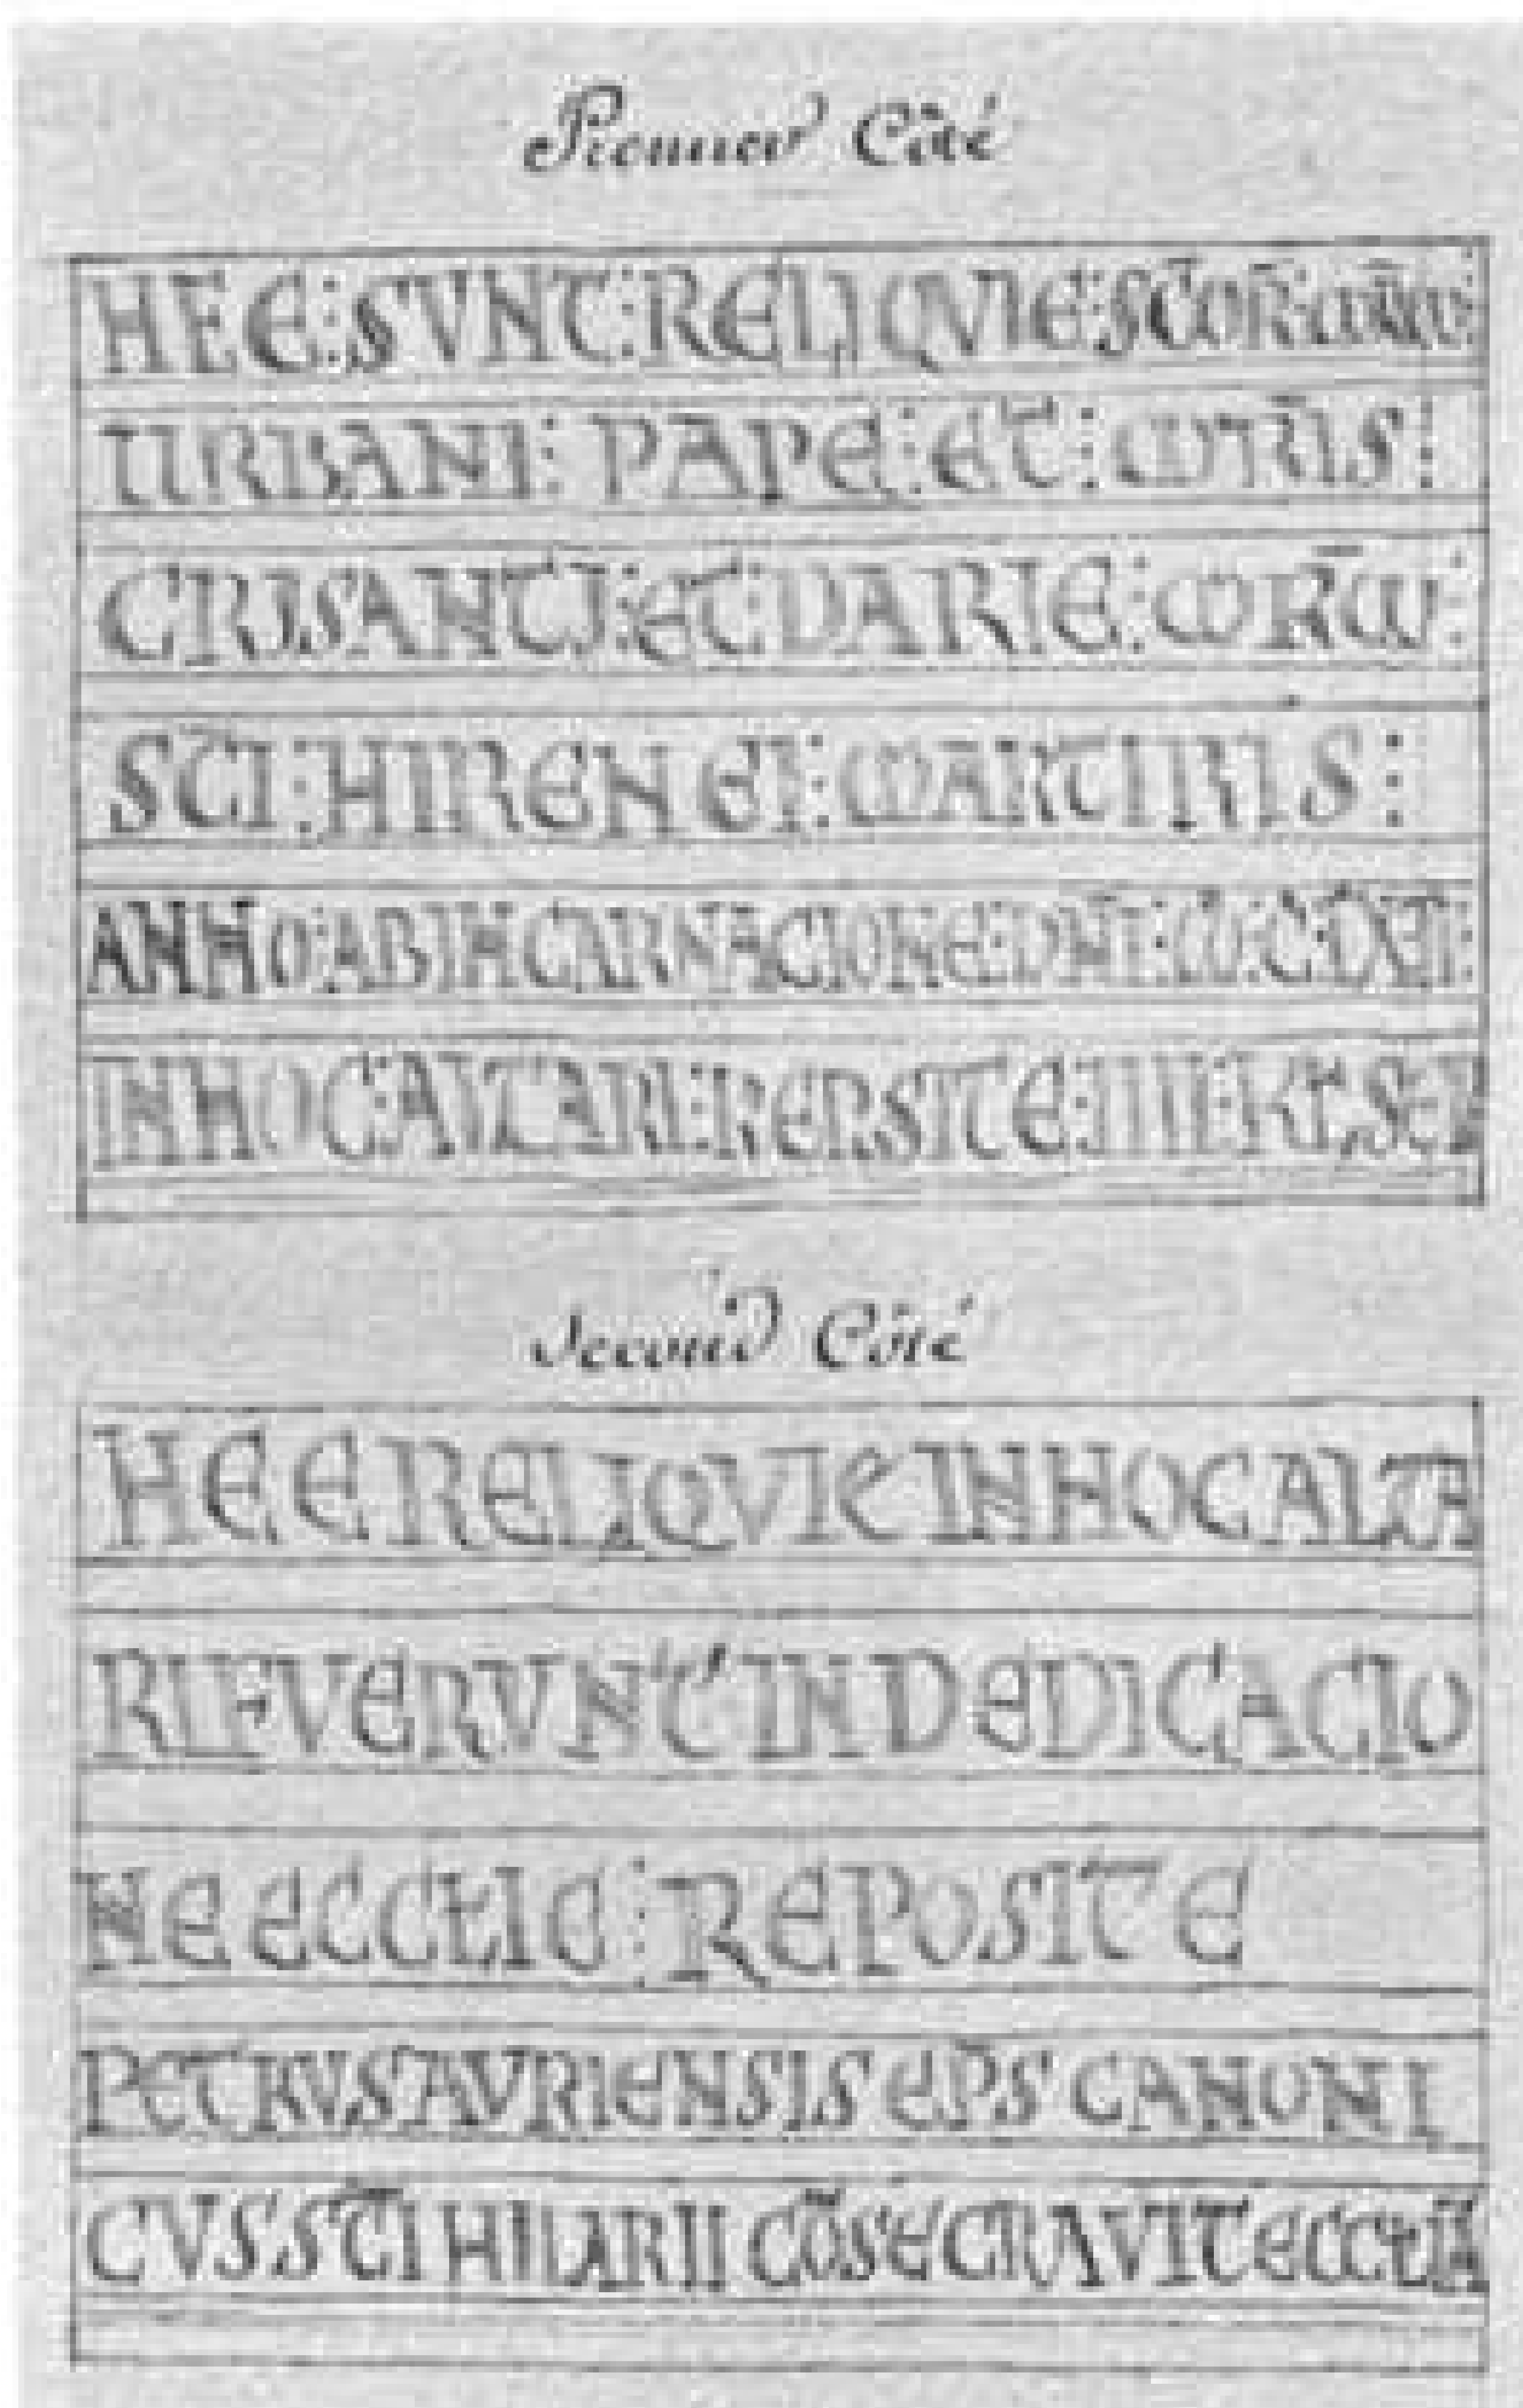 Premier Côté
HEE : SVNT : RELIQVIE : SCOR̄ :
URBANI : PAPE : ET : MR̄IS :
CRISANTI : ET : DARIE : MR̄M :
SC̄I : HIRENEI : MARTIRIS :
ANNO : AB INCARNACIONE : DN̄I : M : C :
IN HOC : ALTARI : REPSITE : IIII : KL̄ : SE
Second Côté
HEE RELIQVIE IN HOC ALTA
RI FVERVNT IN DEDICACIO
NE ECCŁIE : REPOSITE
PETRVS AVRIENSIS EP̄S CANONI
CVS SC̄I HILARII CŌSECRAVIT ECCŁIĀ